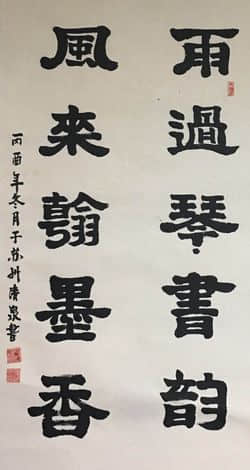 雨過琴書韵
風來翰墨香
丙酉年冬月于蘇州濤泉書